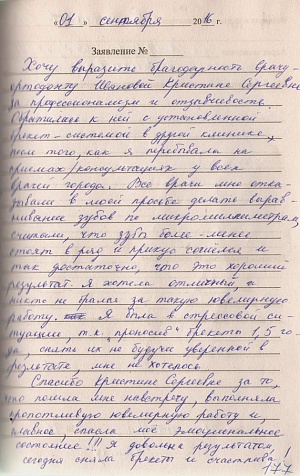 « 01 » сентября 2016 г.
Заявление №
Хочу выразить благодарность врачу-
ортодонту Ивановой Кристине Сергеевне
за профессионализм и отзывчивость.
Обратилась к ней с установленной
брекет-системой в другой клинике,
после того, как я перебывала на
приемах/консультациях у всех
врачей города. Все врачи мне отка-
зывали в моей просьбе делать вырав-
нивание зубов по микромиллиметрам,
считали, что зубы более-менее
стоят в ряд и прикус сошёлся и
так достаточно, что это хороший
результат. Я хотела отличный и
никто не брался за такую ювелирную
работу. Я была в стрессовой си-
туации, т.к. "проносив" брекеты 1,5 го-
да, снять их не будучи уверенной в
результате, мне не хотелось.
Спасибо Кристине Сергеевне за то,
что пошла мне навстречу, выполняла
кропотливую ювелирную работу и
главное спасла моё эмоциональное
состояние!!! Я довольна результатом,
сегодня сняла брекеты и счастлива!
177